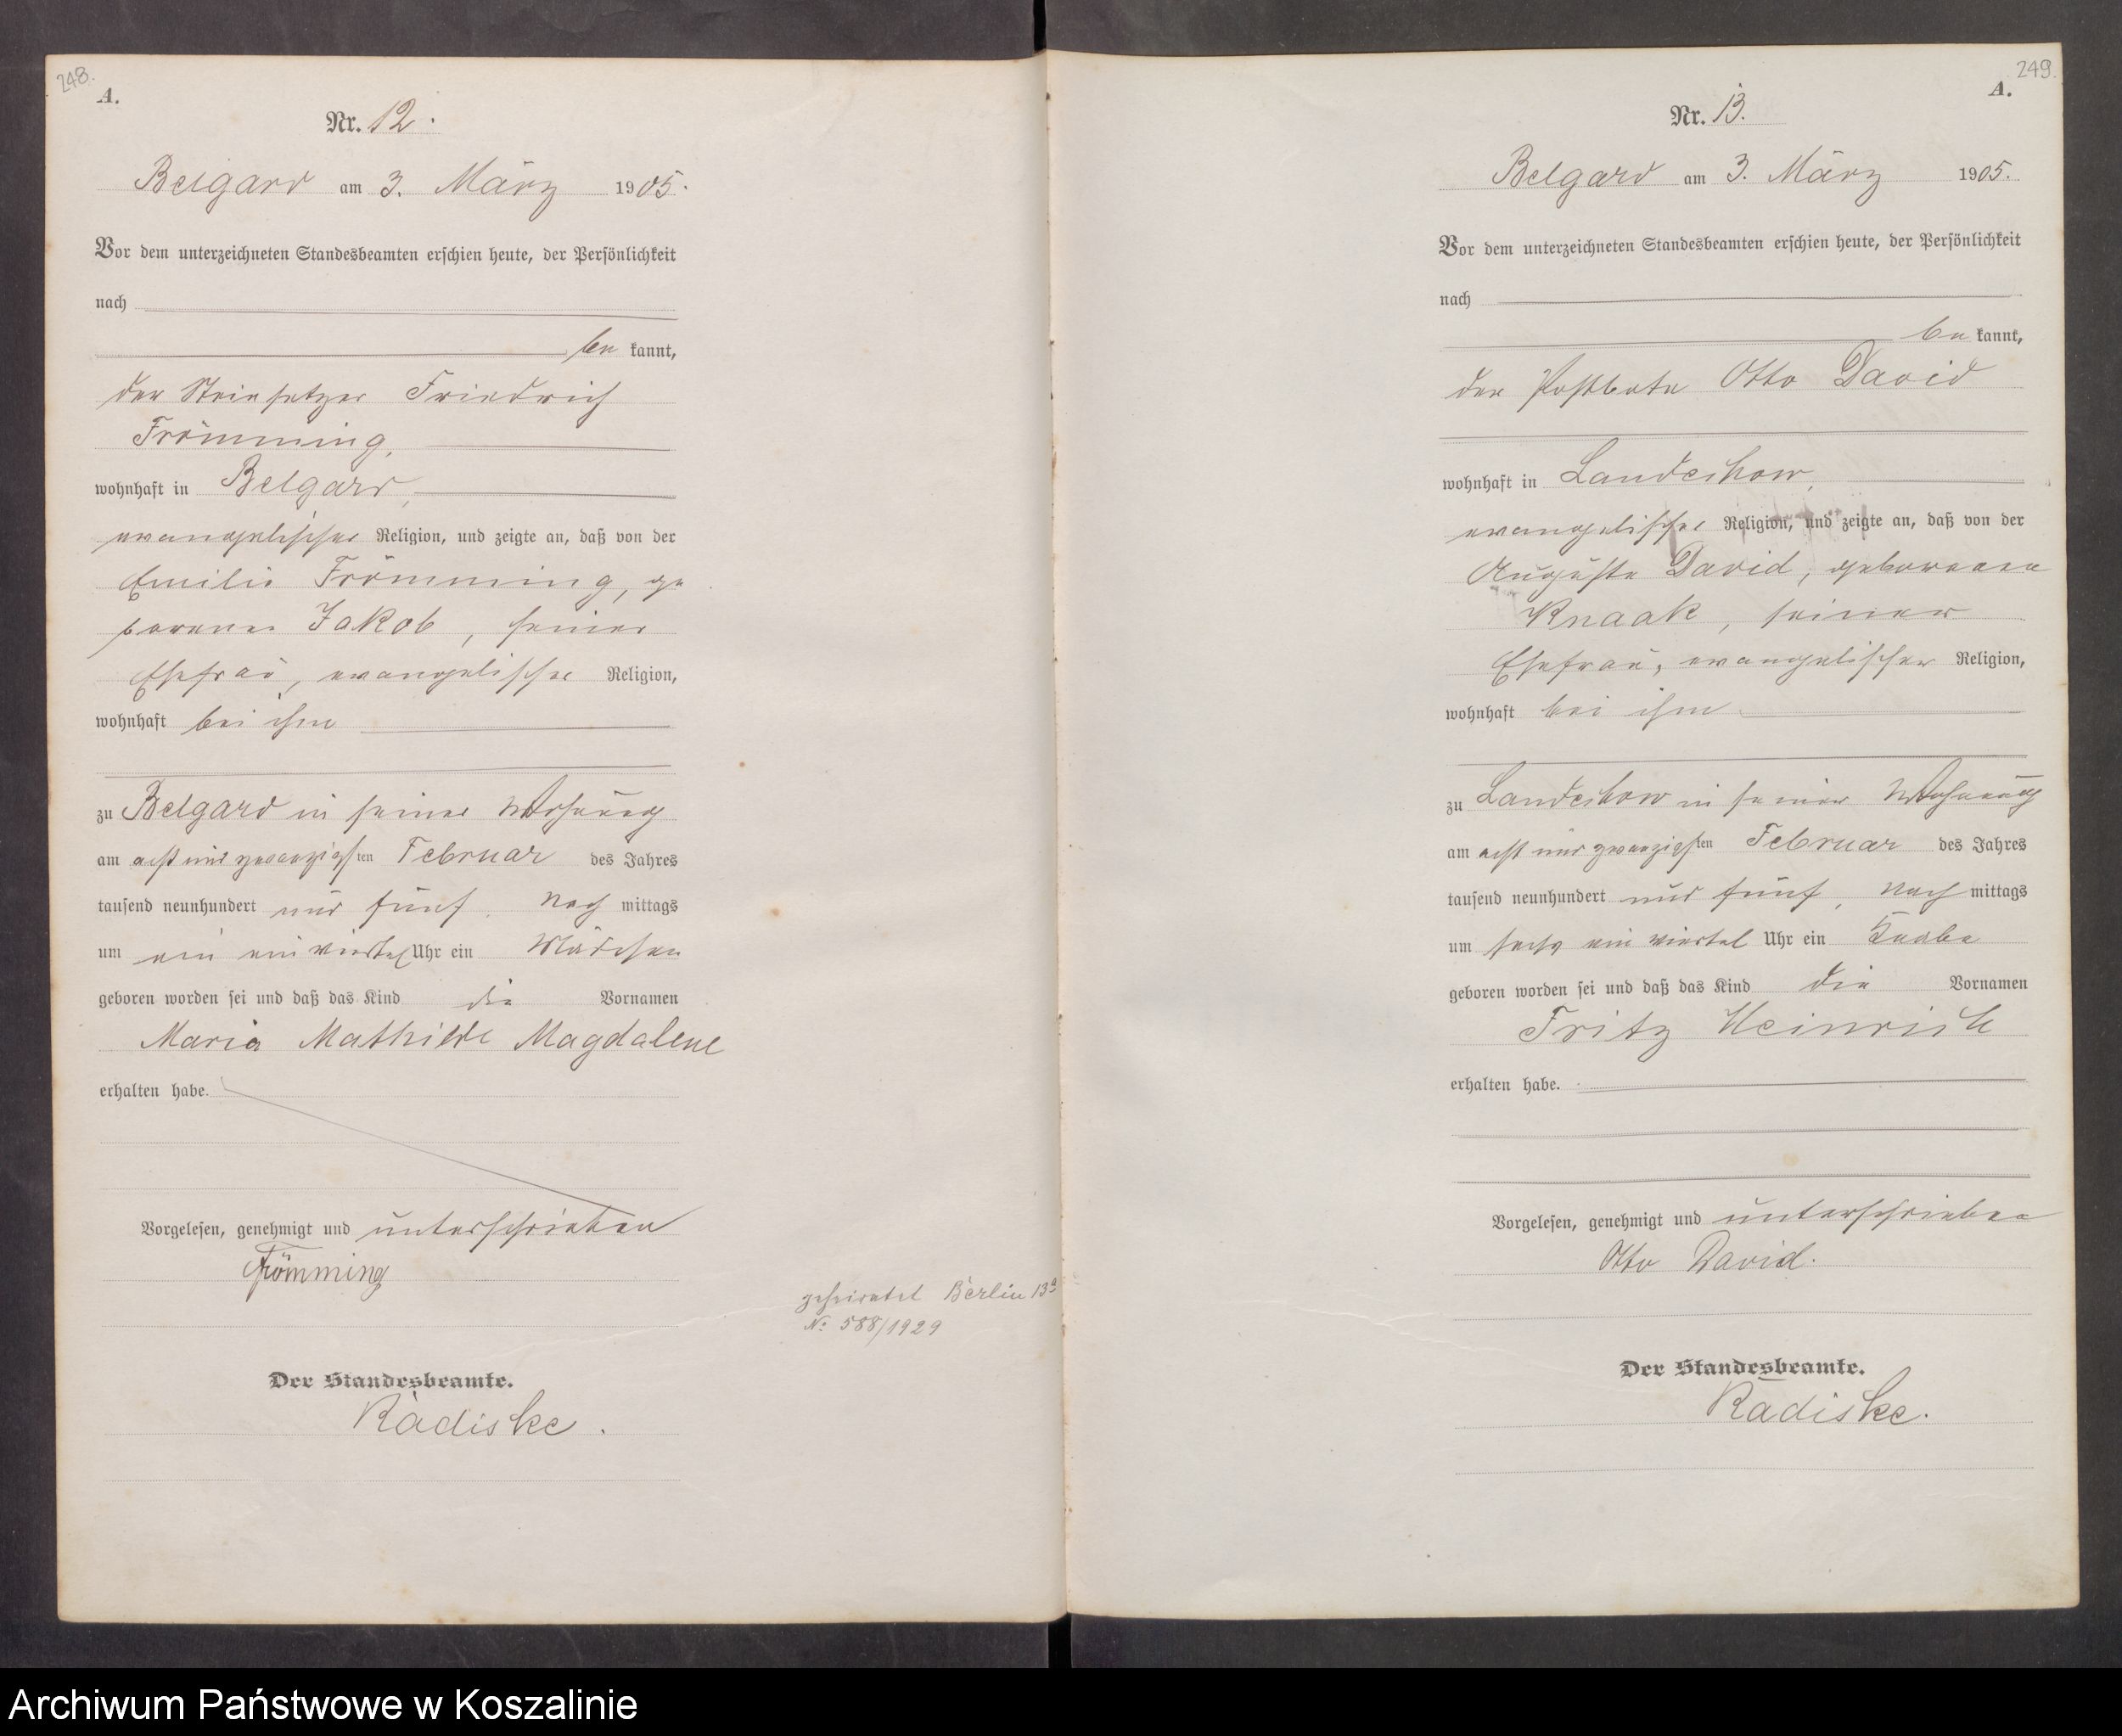 248.
A.
Nr. 12.
Belgard am 3. März 1905.
Vor dem unterzeichneten Standesbeamten erschien heute, der Persönlichkeit
nach
be kannt,
der Steinsetzer Friedrich
Frömming,
wohnhaft in Belgard,
evangelischer Religion, und zeigte an, daß von der
Emilie Frömming, ge
borenen Jakob, seiner
Ehefrau, evangelischer Religion,
wohnhaft bei ihm
zu Belgard in seiner Wohnung
am acht und zwanzigsten Februar des Jahres
tausend neunhundert und fünf, nach mittags
um ein ein viertel Uhr ein Mädchen
geboren worden sei und daß das Kind die Vornamen
Maria Mathilde Magdalene
erhalten habe.
Vorgelesen, genehmigt und unterschrieben
Frömming
Der Standesbeamte.
Radiske.
geheiratet Berlin 13a
No 588/1929
249.
A.
Nr. 13.
Belgard am 3. März 1905.
Vor dem unterzeichneten Standesbeamten erschien heute, der Persönlichkeit
nach
be kannt,
der Postbote Otto David
wohnhaft in Landechow,
evangelischer Religion, und zeigte an, daß von der
Auguste David, geborenen
Knaak, seiner
Ehefrau, evangelischer Religion,
wohnhaft bei ihm
zu Landechow in seiner Wohnung
am acht und zwanzigsten Februar des Jahres
tausend neunhundert und fünf, nach mittags
um sechs ein viertel Uhr ein Knabe
geboren worden sei und daß das Kind die Vornamen
Fritz Heinrich
erhalten habe.
Vorgelesen, genehmigt und unterschrieben
Otto David.
Der Standesbeamte.
Radiske.
Archiwum Państwowe w Koszalinie